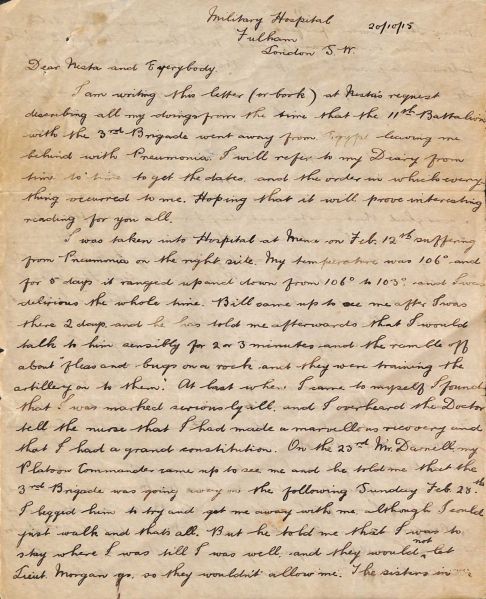 Military Hospital
Fulham
20/10/15
London S.W.
Dear Nesta and Everybody
I am writing this letter (or book) at Nesta's request
describing all my doings from the time that the 11th Battalion
with the 3rd Brigade went away from Egypt leaving me
behind with Pneumonia. I will refer to my Diary from
time to time to get the dates and the order in which every
thing occurred to me. Hoping that it will prove interesting
reading for you all.
I was taken into Hospital at Mena on Feb. 12th suffering
from Pneumonia on the right side. My temperature was 106° and
for 5 days it ranged up and down from 106° to 103° and I was
delirious the whole time. Bill came up to see me after I was
there 2 days and he has told me afterwards that I would
talk to him sensibly for 2 or 3 minutes and the ramble off
about "fleas and bugs on a rock and they were training the
artillery on to them". At last when I came to myself I found
that I was marked seriously ill, and I overheard the Doctor
tell the nurse that I had made a marvellous recovery and
that I had a grand constitution. On the 23rd Mr. Darnell my
Platoon Commander came up to see me and he told me that the
3rd Brigade was going away on the following Sunday Feb. 28th
I begged him to try and get me away with me, although I could
just walk and thats all. But he told me that I was to
stay where I was till I was well and they would not let
Lieut. Morgan go, so they wouldn't allow me. The sisters in